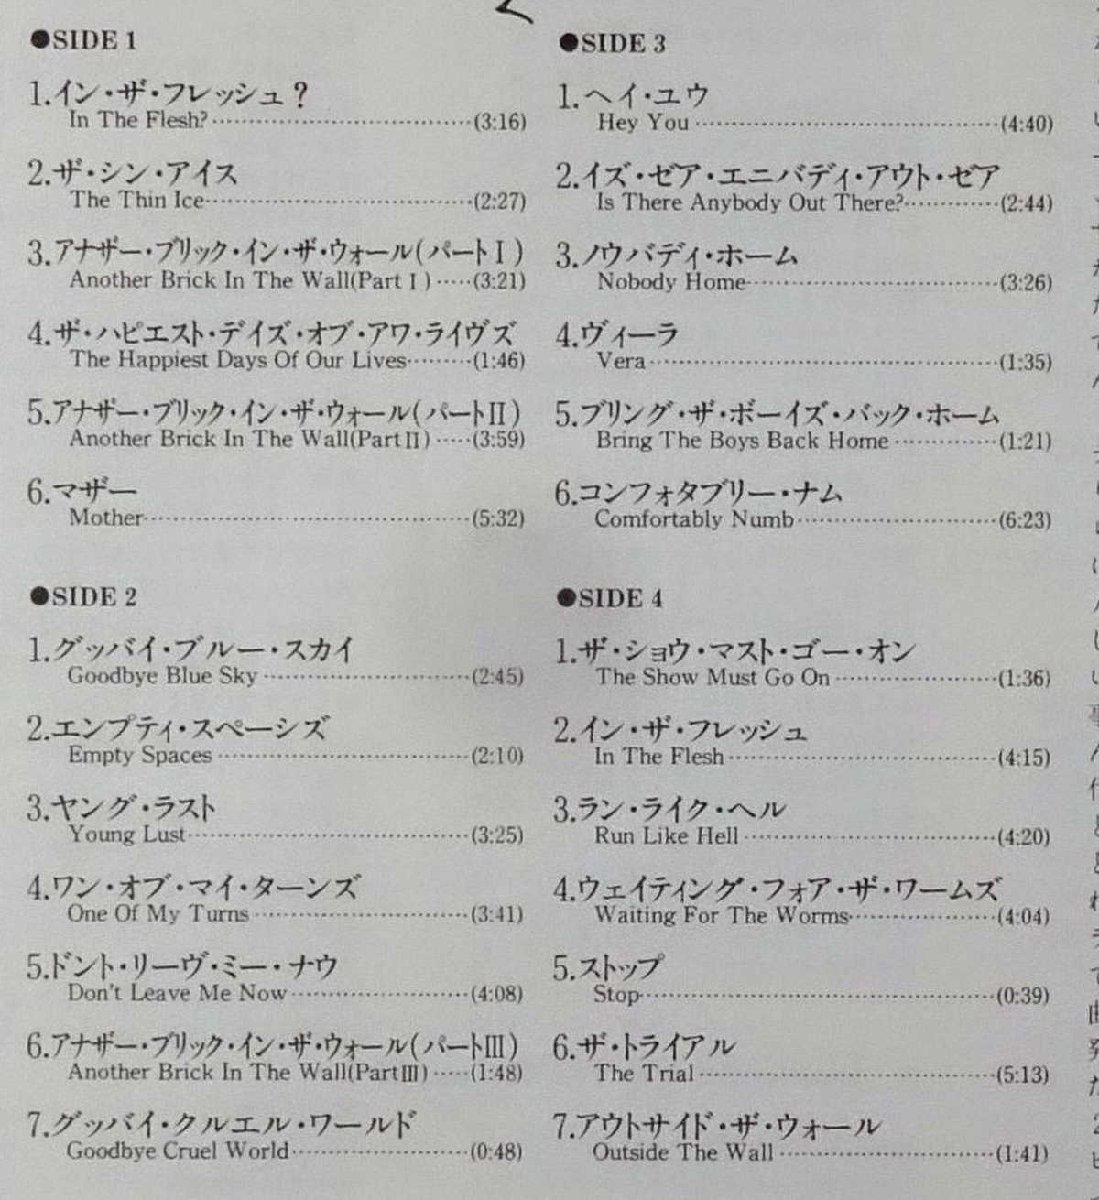 ●SIDE 1
1.イン・ザ・フレッシュ?
In The Flesh?……(3:16)
2.ザ・シン・アイス
The Thin Ice……(2:27)
3.アナザー・ブリック・イン・ザ・ウォール(パートⅠ)
Another Brick In The Wall(PartⅠ)……(3:21)
4.ザ・ハピエスト・デイズ・オブ・アワ・ライヴズ
The Happiest Days Of Our Lives……(1:46)
5.アナザー・ブリック・イン・ザ・ウォール(パートⅡ)
Another Brick In The Wall(PartⅡ)……(3:59)
6.マザー
Mother……(5:32)
●SIDE 2
1.グッバイ・ブルー・スカイ
Goodbye Blue Sky……(2:45)
2.エンプティ・スペーシズ
Empty Spaces……(2:10)
3.ヤング・ラスト
Young Lust……(3:25)
4.ワン・オブ・マイ・ターンズ
One Of My Turns……(3:41)
5.ドント・リーヴ・ミー・ナウ
Don't Leave Me Now……(4:08)
6.アナザー・ブリック・イン・ザ・ウォール(パートⅢ)
Another Brick In The Wall(PartⅢ)……(1:48)
7.グッバイ・クルエル・ワールド
Goodbye Cruel World……(0:48)
●SIDE 3
1.ヘイ・ユウ
Hey You……(4:40)
2.イズ・ゼア・エニバディ・アウト・ゼア
Is There Anybody Out There?……(2:44)
3.ノウバディ・ホーム
Nobody Home……(3:26)
4.ヴィーラ
Vera……(1:35)
5.ブリング・ザ・ボーイズ・バック・ホーム
Bring The Boys Back Home……(1:21)
6.コンフォタブリー・ナム
Comfortably Numb……(6:23)
●SIDE 4
1.ザ・ショウ・マスト・ゴー・オン
The Show Must Go On……(1:36)
2.イン・ザ・フレッシュ
In The Flesh……(4:15)
3.ラン・ライク・ヘル
Run Like Hell……(4:20)
4.ウェイティング・フォア・ザ・ワームズ
Waiting For The Worms……(4:04)
5.ストップ
Stop……(0:39)
6.ザ・トライアル
The Trial……(5:13)
7.アウトサイド・ザ・ウォール
Outside The Wall……(1:41)